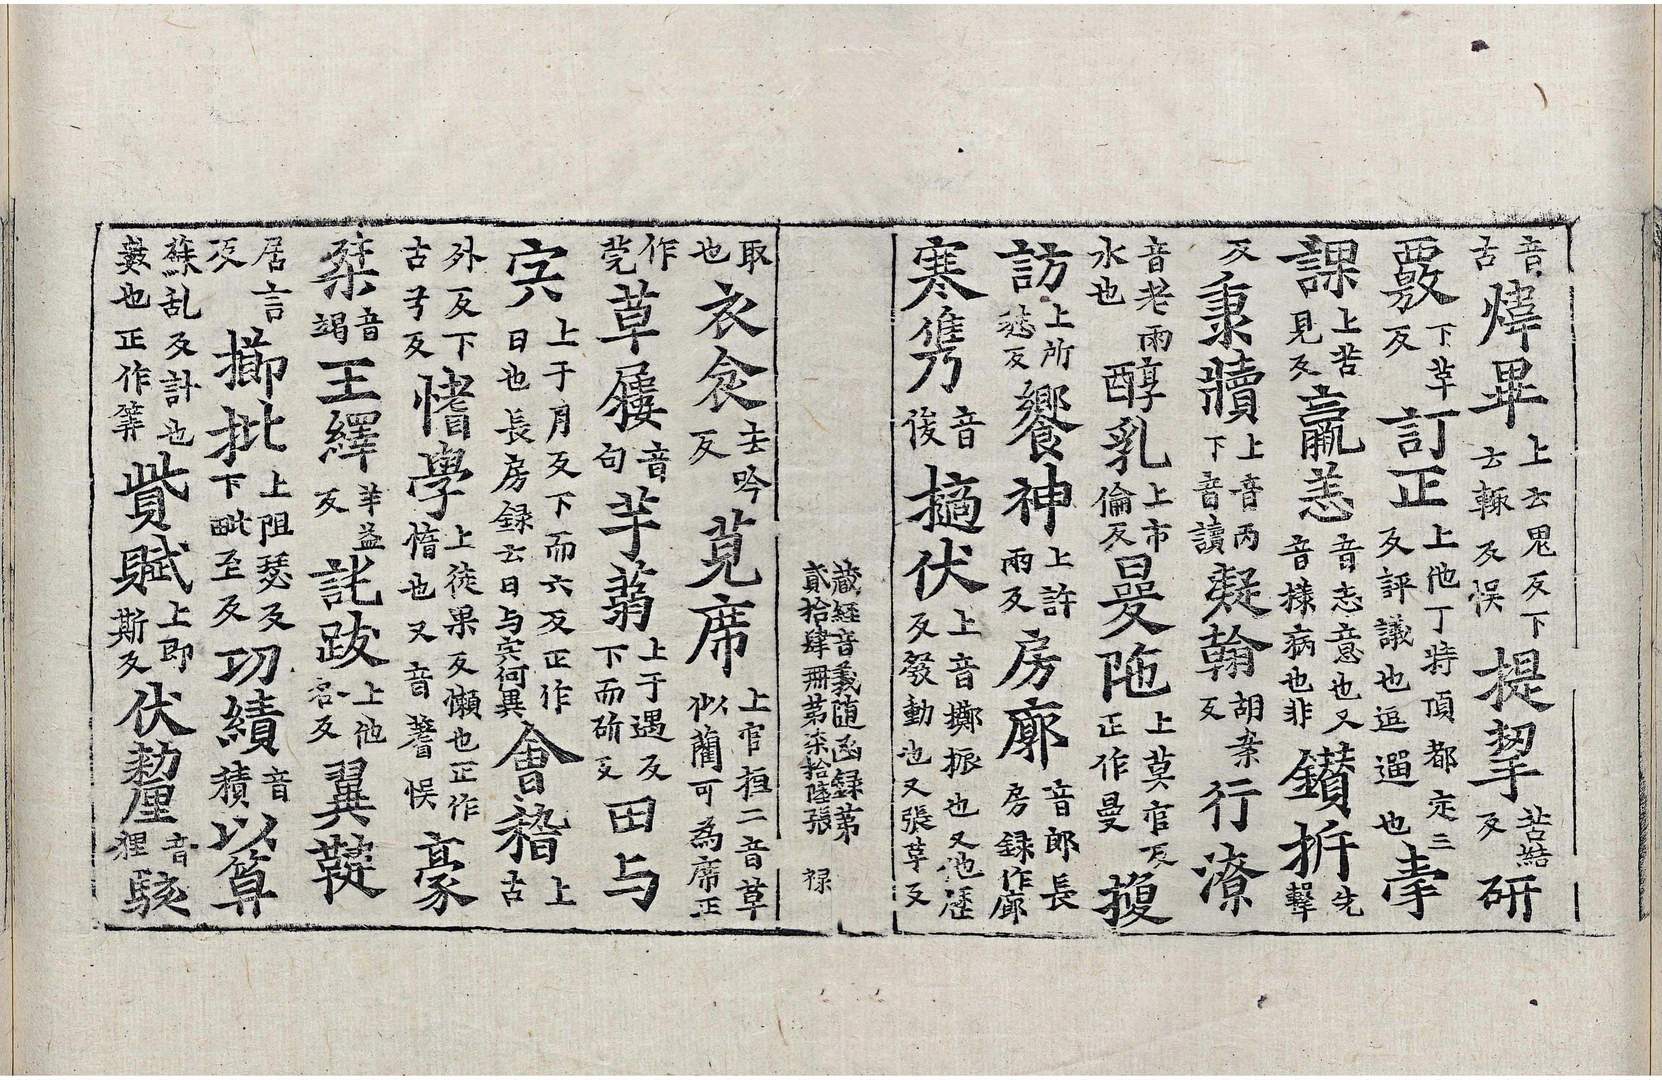 音古煒畢上云鬼反下云輠反悮提挈苦結反研
覈下革反訂正上他丁時頂都定三反評議也逗遛也聿
課上苦見反羸恙音志意也又音㨾病也非鑽抍先擊
反秉牘上音丙下音讀凝翰胡案反行潦
音老雨水也醇乳上市倫反曼陁上莫官反正作曼㨱
訪上所愁反饗神上許雨反房廊音郎長房録作廊
寒雋音俊擿伏上音擲振也又他歷反發動也又張革反
藏經音義随函録第貳拾肆冊第柒拾陸張 禄
取也衣衾去吟反莧席上官桓二音草似藺可為席正
作莞草屨音句芋蒻上于遇反下而斫反田与
宍上于月反下而六反正作日也長房録云日与宍何異會稽上古
外反下古兮反愭學上徒果反懶也正作惰也又音耆悮豪
桀音竭王繹羊益反託跋上他各反翼鞬
居言反擳批上阻瑟反下毗至反功績音積以筭
蘇乱反計也數也正作筭貲賦上即斯反伏勑釐音狸駭